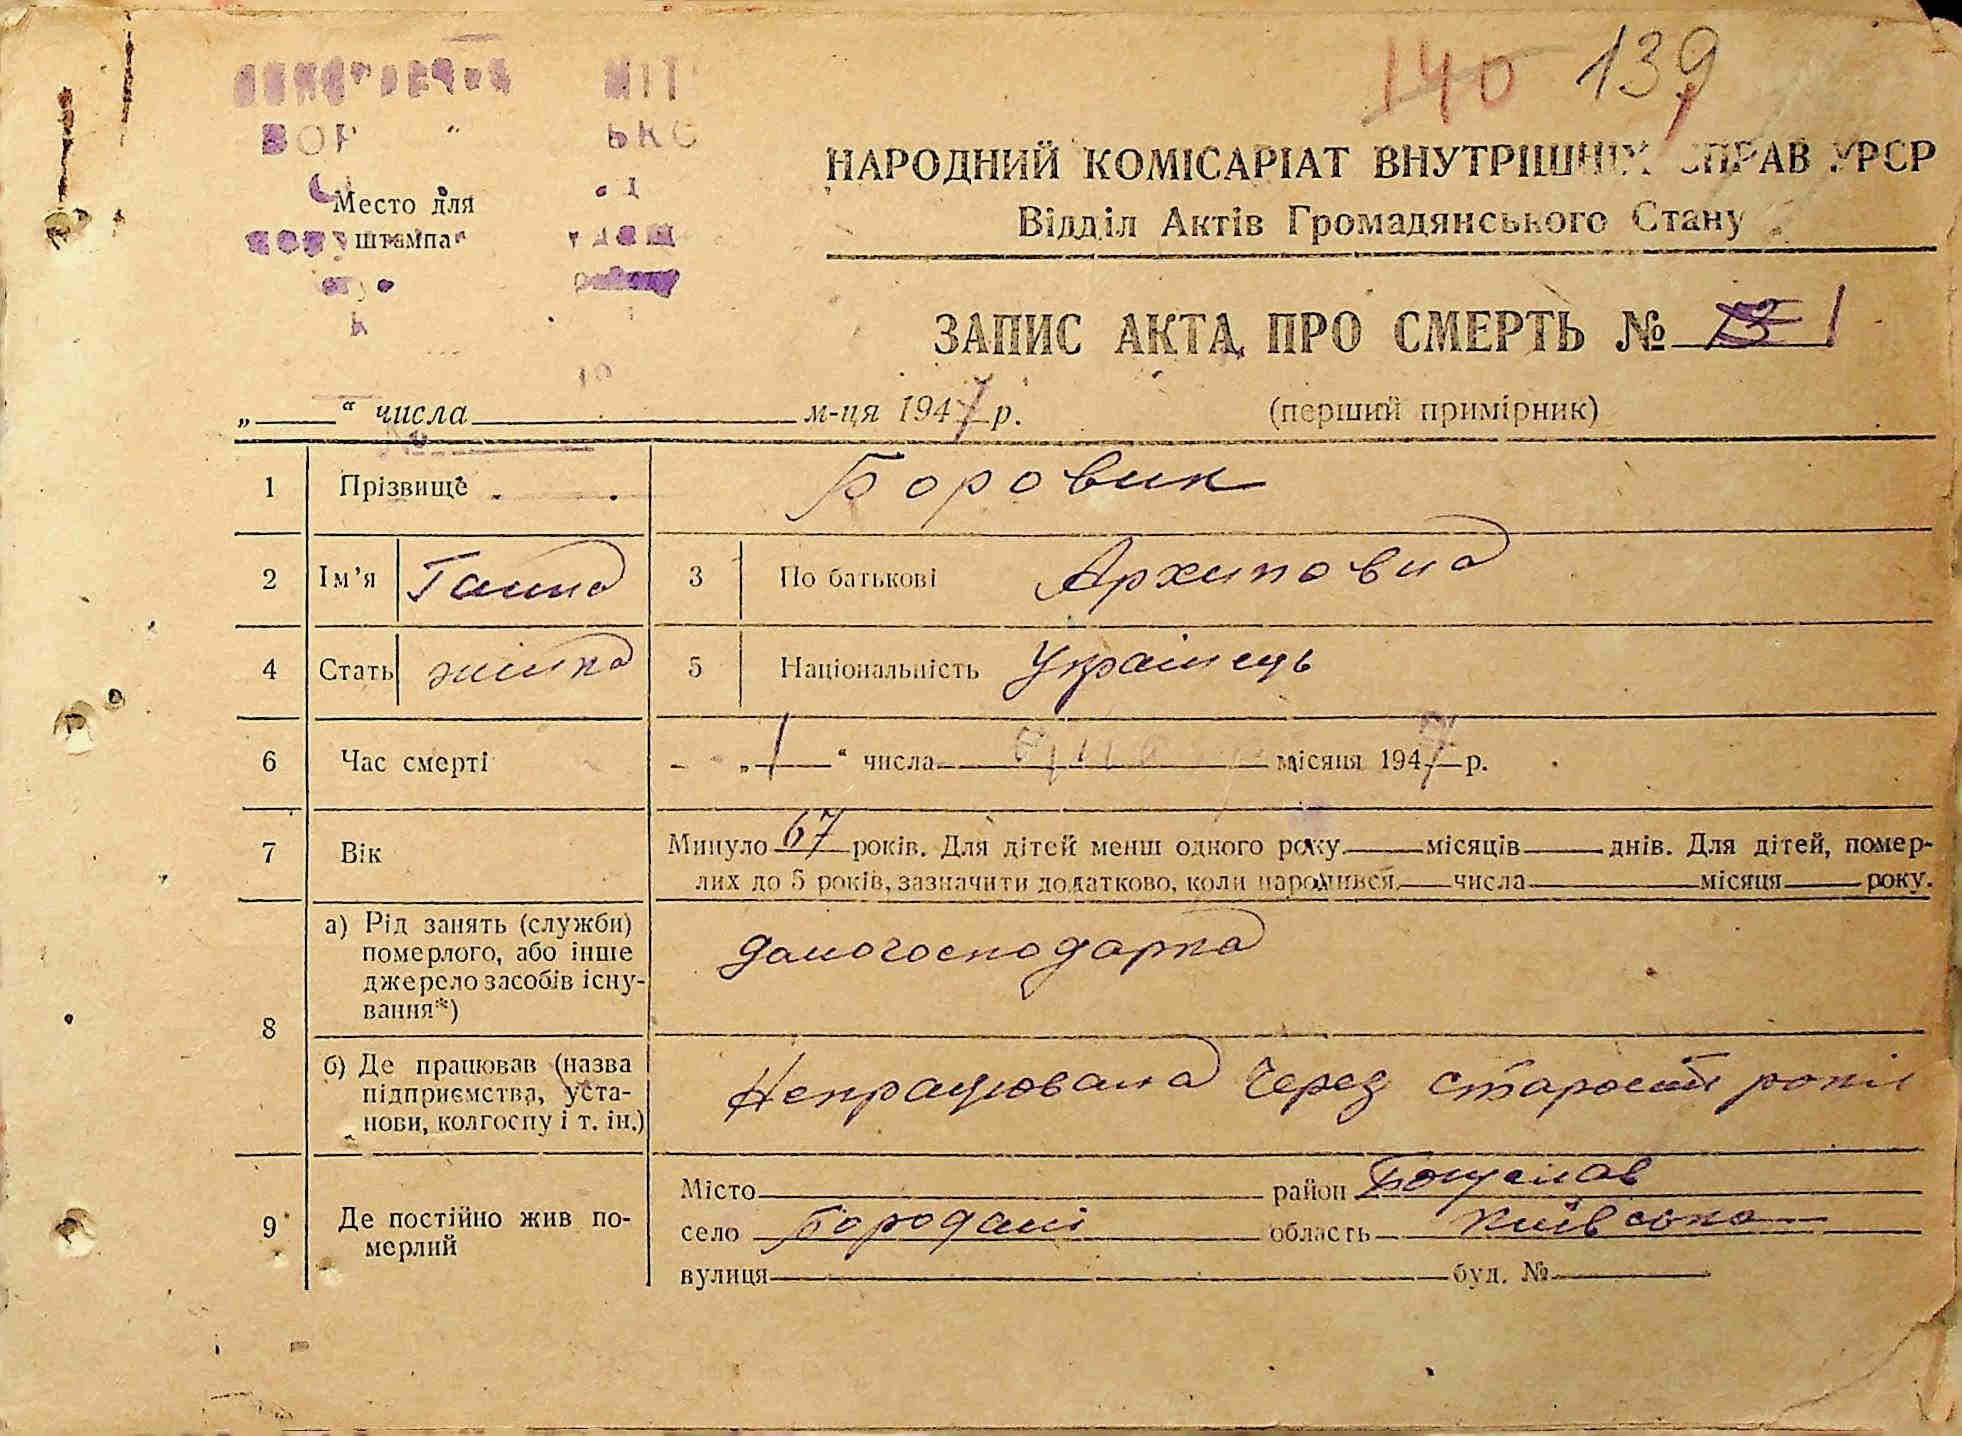 140 139
НАРОДНИЙ КОМІСАРІАТ ВНУТРІШНІХ СПРАВ УРСР
Відділ Актів Громадянського Стану
Место для
штампа
ЗАПИС АКТА ПРО СМЕРТЬ № 13 1
„ “ числа м-ця 1947 р. (перший примірник)
1 Прізвище Боровик
2 Ім’я Ганна 3 По батькові Архиповна
4 Стать жінка 5 Національність Українець
6 Час смерті „ 1 “ числа місяця 1947 р.
7 Вік Минуло 67 років. Для дітей менш одного року місяців днів. Для дітей, помер-
лих до 5 років, зазначити додатково, коли народився числа місяця року.
8 а) Рід занять (служби)
померлого, або інше
джерело засобів існу-
вання*) домогосподарка
б) Де працював (назва
підприємства, уста-
нови, колгоспу і т. ін.) Непрацювала через старости років
9 Де постійно жив по-
мерлий
Місто район Богуслав
село Бородані область Київська
вулиця буд. №